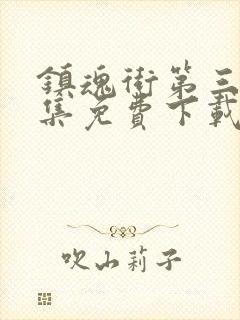 鎮魂街第三
集免費下載
吹山莉子